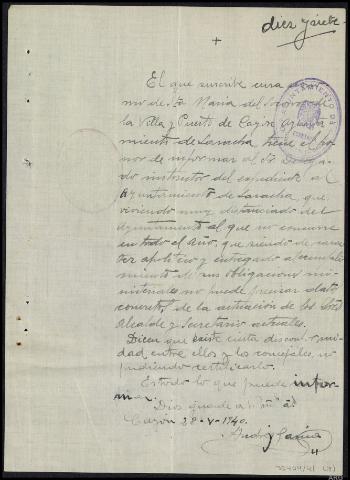 diez y siete
+
El que suscribe cura
mo de Sta María del Socorro de
la Villa y Puerto de Cayón Ayunta-
miento de Laracha, tiene el ho-
nor de informar al Sr. Delega-
do instructor del expediente al
Ayuntamiento de Laracha, que
viviendo muy distanciado del
Ayuntamiento al que no concurre
en todo el Año, que siendo de carac-
ter apolítico y entregado al cumpli-
miento de sus obligaciones mi-
nisteriales no puede precisar datos
concretos de la actuación de los Sres
Alcalde y Secretario actuales.
Dicen que existe cierta desconformi-
dad entre ellos y los concejales, no
pudiendo certificarlo.
Es todo lo que puede infor-
mar.
Dios guarde a
Cayón 28-V-1940.
Andrés García
AYUNTAMIENTO DE